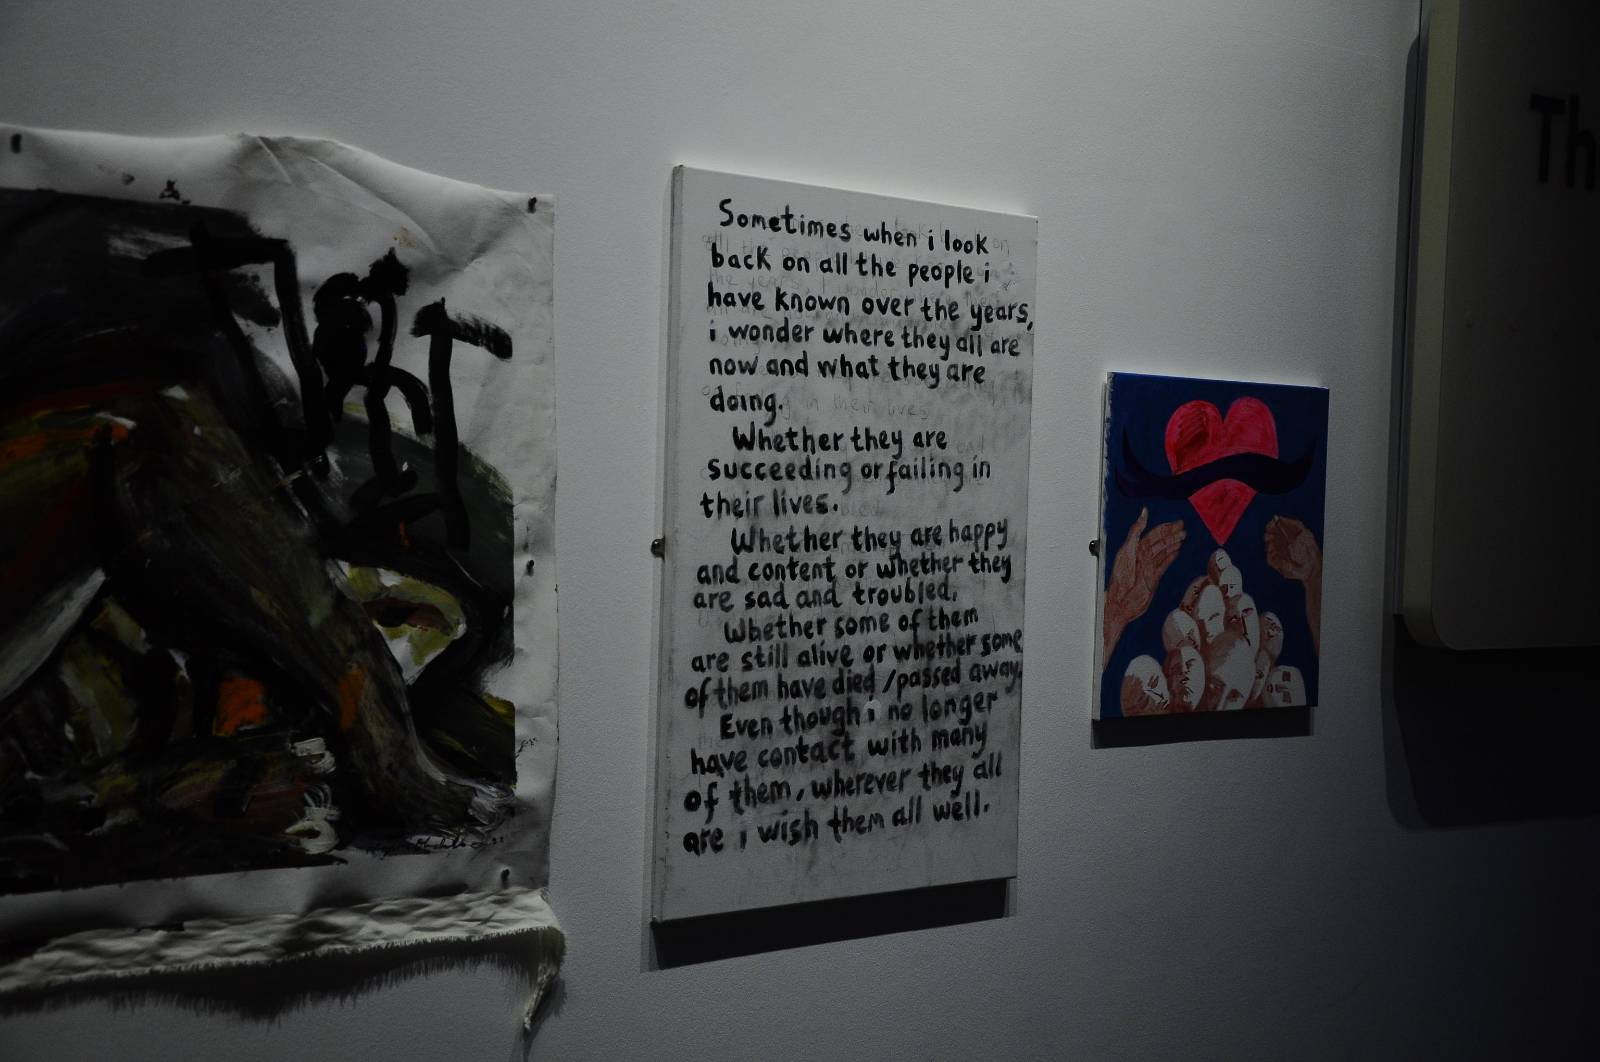 Sometimes when i look
back on all the people i
have known over the years,
i wonder where they all are
now and what they are
doing.
Whether they are
succeeding or failing in
their lives.
Whether they are happy
and content or whether they
are sad and troubled.
Whether some of them
are still alive or whether some
of them have died / passed away.
Even though i no longer
have contact with many
of them, wherever they all
are i wish them all well.
Th